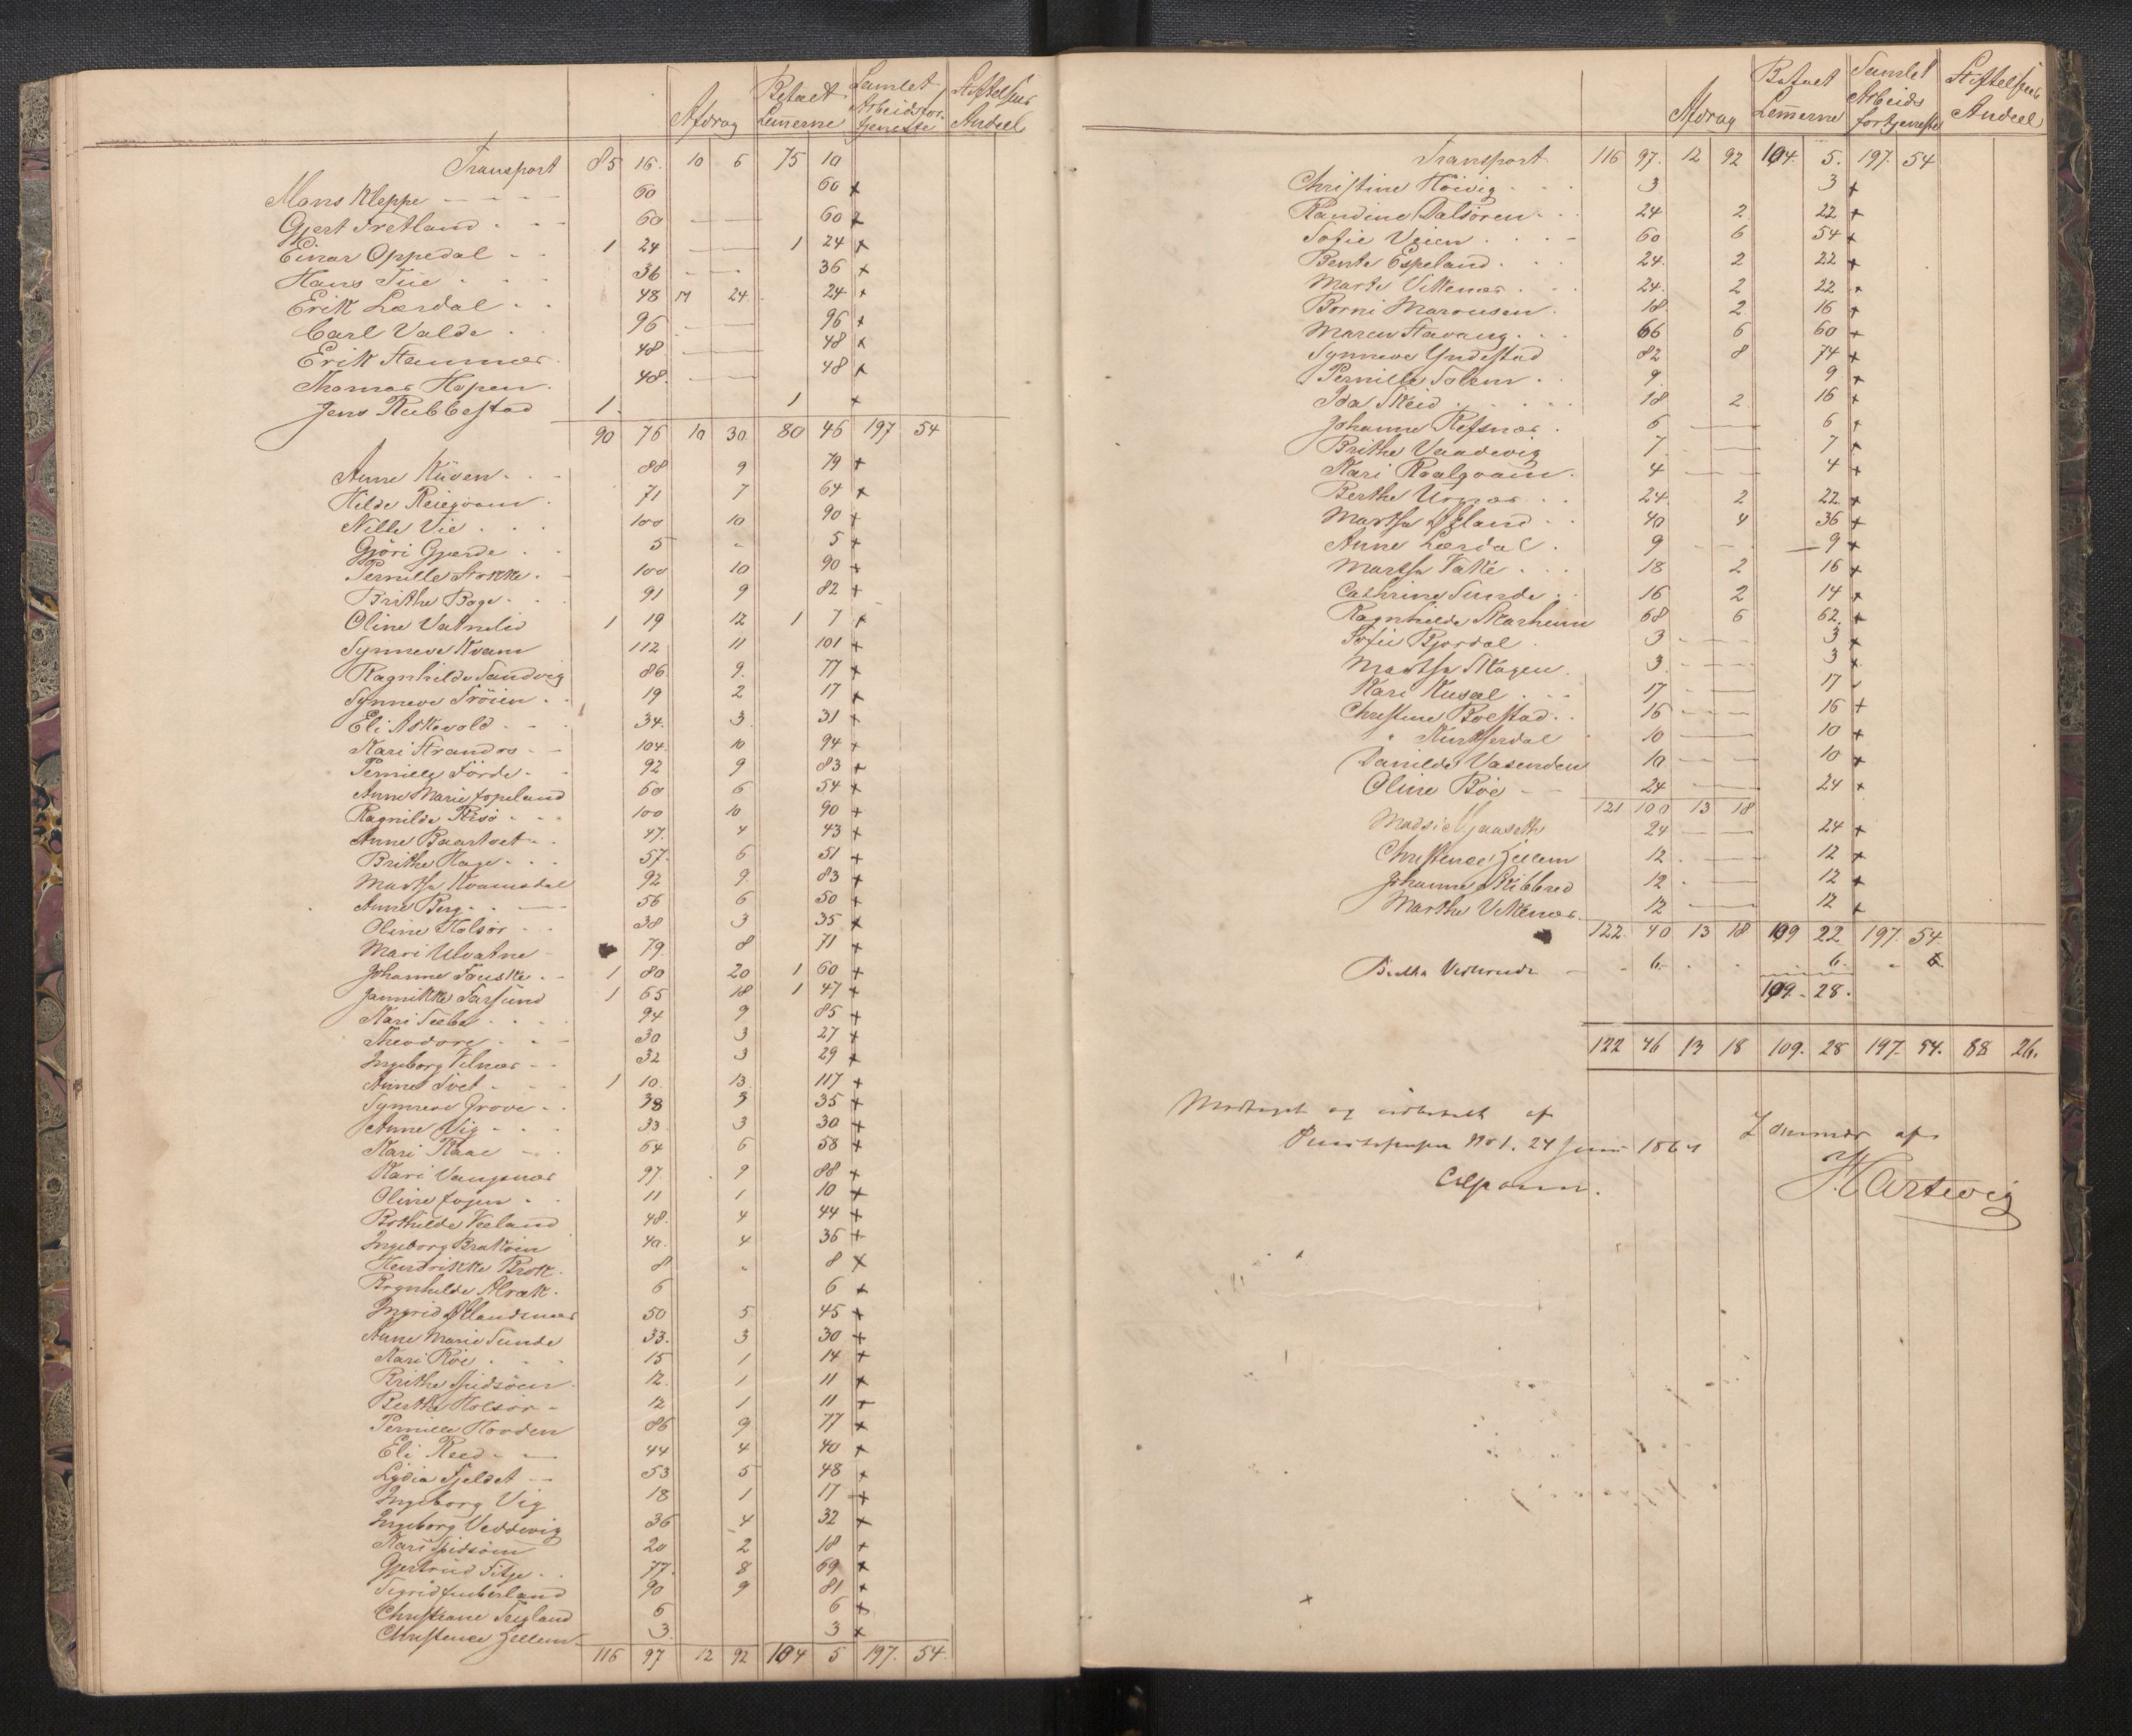 Afdrag Betaelt Lem̄erne Samlet Arbeidsfor-tjeneste Stiftelsens Andeel
Transport 85 16. 10 6 75 10
Mons Kleppe - - - - 60 60 x
Gjert Fretland . . . 60 — — 60 x
Einar Oppedal . . 1 24 — — 1 24 x
Hans Tue . . . 36 - - - 36 x
Erik Lærdal . . 48 24. 24 x
Carl Valde . . 96 — — 96 x
Erik Stammer . 48 — — 48 x
Thomas Hopen . 48. — — 48 x
Jens Rubbestad 1. 1 x
90 76 10 30 80 46 197 54
Anne . . . 88 9 79 x
Hilde . 71 7 64 x
Nille Vie . . . 100 10 90 x
Gjöri Gjerde . . 5 - 5 x
Pernille Stokke . - 100 10 90 x
Brithe Boge . . 91 9 82 x
Oline Vatnelid 1 19 12 1 7 x
Synneve Kvam 112 11 101 x
Ragnhilde Sandvig 86 9. 77 x
Synneve Tröien . . 19 2 17 x
Eli Askevold - - . 34. 3. 31 x
Kari Strandos - - 104. 10 94 x
Pernille Förde . . 92 9 83 x
Anne Marie 60 6 54 x
Ragnilde Risö - - - 100 10 90 x
Anne Baartvet . . 47. 4 43 x
Brithe Hage . . . 57. 6 51 x
Martha Kvamsdal 92 9 83 x
Anne Berg . . — 56 6 50 x
Oline Holsør - - 38 3 35 x
Mari Ulvatne 79. 8 71 x
Johanne Tauske . - 1 80 20 1 60 x
Jannikke Farsund 1 65 18 1 47 x
Kari . . . . 94 9 85 x
Theodore . - - 30 3 27 x
Ingeborg Velnæs - - 32 3 29 x
Anne Tvet - - - 1 10. 13. 117 x
Synneve Grove - . 38 3 35 x
Anne Vig - - . 33 3 30 x
Kari Kaae - . 64 6 58 x
Kari Vangsnæs 97. . 9 88 x
Oline . . 11 1 10 x
Bothilde 48. 4 44 x
Ingeborg 40. 4 36 x
Hendrikke Brok . 8 - 8 x
Brynhilde Alræk . 6 6 x
Ingrid 50 5 45 x
Anne Marie Sunde 33. 3 30 x
Kari Böe . . . 15 1 14 x
Brithe 12. 1 11 x
Berthe Holsør - 12 1 11 x
Pernille Hovden 86 9 77 x
Eli Reed - — 44 4 40 x
Lydia Fjeldet — 53 5 48 x
Ingeborg Vig 18 1 17 x
Ingeborg Veddevig 36 4 32 x
Kari 20 2 18 x
Gjertrud Sitje . . 77. 8 69 x
Sigrid 90 9 81 x
Christiane 6 6 x
Christence Hellem 3. 3 x
116 97 12 92 104 5 197. 54.
Afdrag Betaelt Lem̄erne Samlet Arbeids fortjeneste Stiftelsens Andeel
Transport 116 97. 12 92 104. 5. 197. 54
Christine Höivig . . . 3 3 x
Randine Dalsören . . . 24 2 22 x
Sofie Veien . . . - 60 6 54 x
Bente Espeland . . . 24. 2 22 x
Marte Vikenæs . . . 24. 2 22 x
Borni . 18. 2 16 x
Maren Stavang . . . 66 6 60 x
Synneve Yndestad 82 8 74 x
Pernille Solem . . 9. 9 x
Ida Skeid . . . . . 18 2 16 x
Johanne Refsnæs . 6 — — 6 x
Brithe 7. . — 7 x
Kari . 4 — — 4 x
Berthe Urnæs . . . 24. 2 22 x
Martha . . 40 4 36 x
Anne Lærdal . 9 - - . — 9 x
Martha . . . 18 2 16 x
Cathrine Sunde . . 16 2 14 x
Ragnhilde Skarheim 68 6 62. x
Sofie Bjordal . 3 - — 3 x
Martha Skagen . 3. - — 3 x
Kari . . . 17 - — 17 x
Christine Boestad . . 16 - — 16 +
" 10 — — 10 x
Danilde Vasenden 10 — — 10 x
Oline Böe - - 24 - — 24 x
121 100 13 18
24 — — 24 x
Christence Hellem 12. . — 12 x
Johanne 12 . — 12 x
Marthe Vikenæs . 12 — — 12 x
122. 40 13 18 109 22 197. 54.
- . 6. . . 6. . 6.
109. - 28.
122 46 13 18 109. 28 197. 54. 88 26.
Modtaget og af
24 Juni 186
af
Hartwig